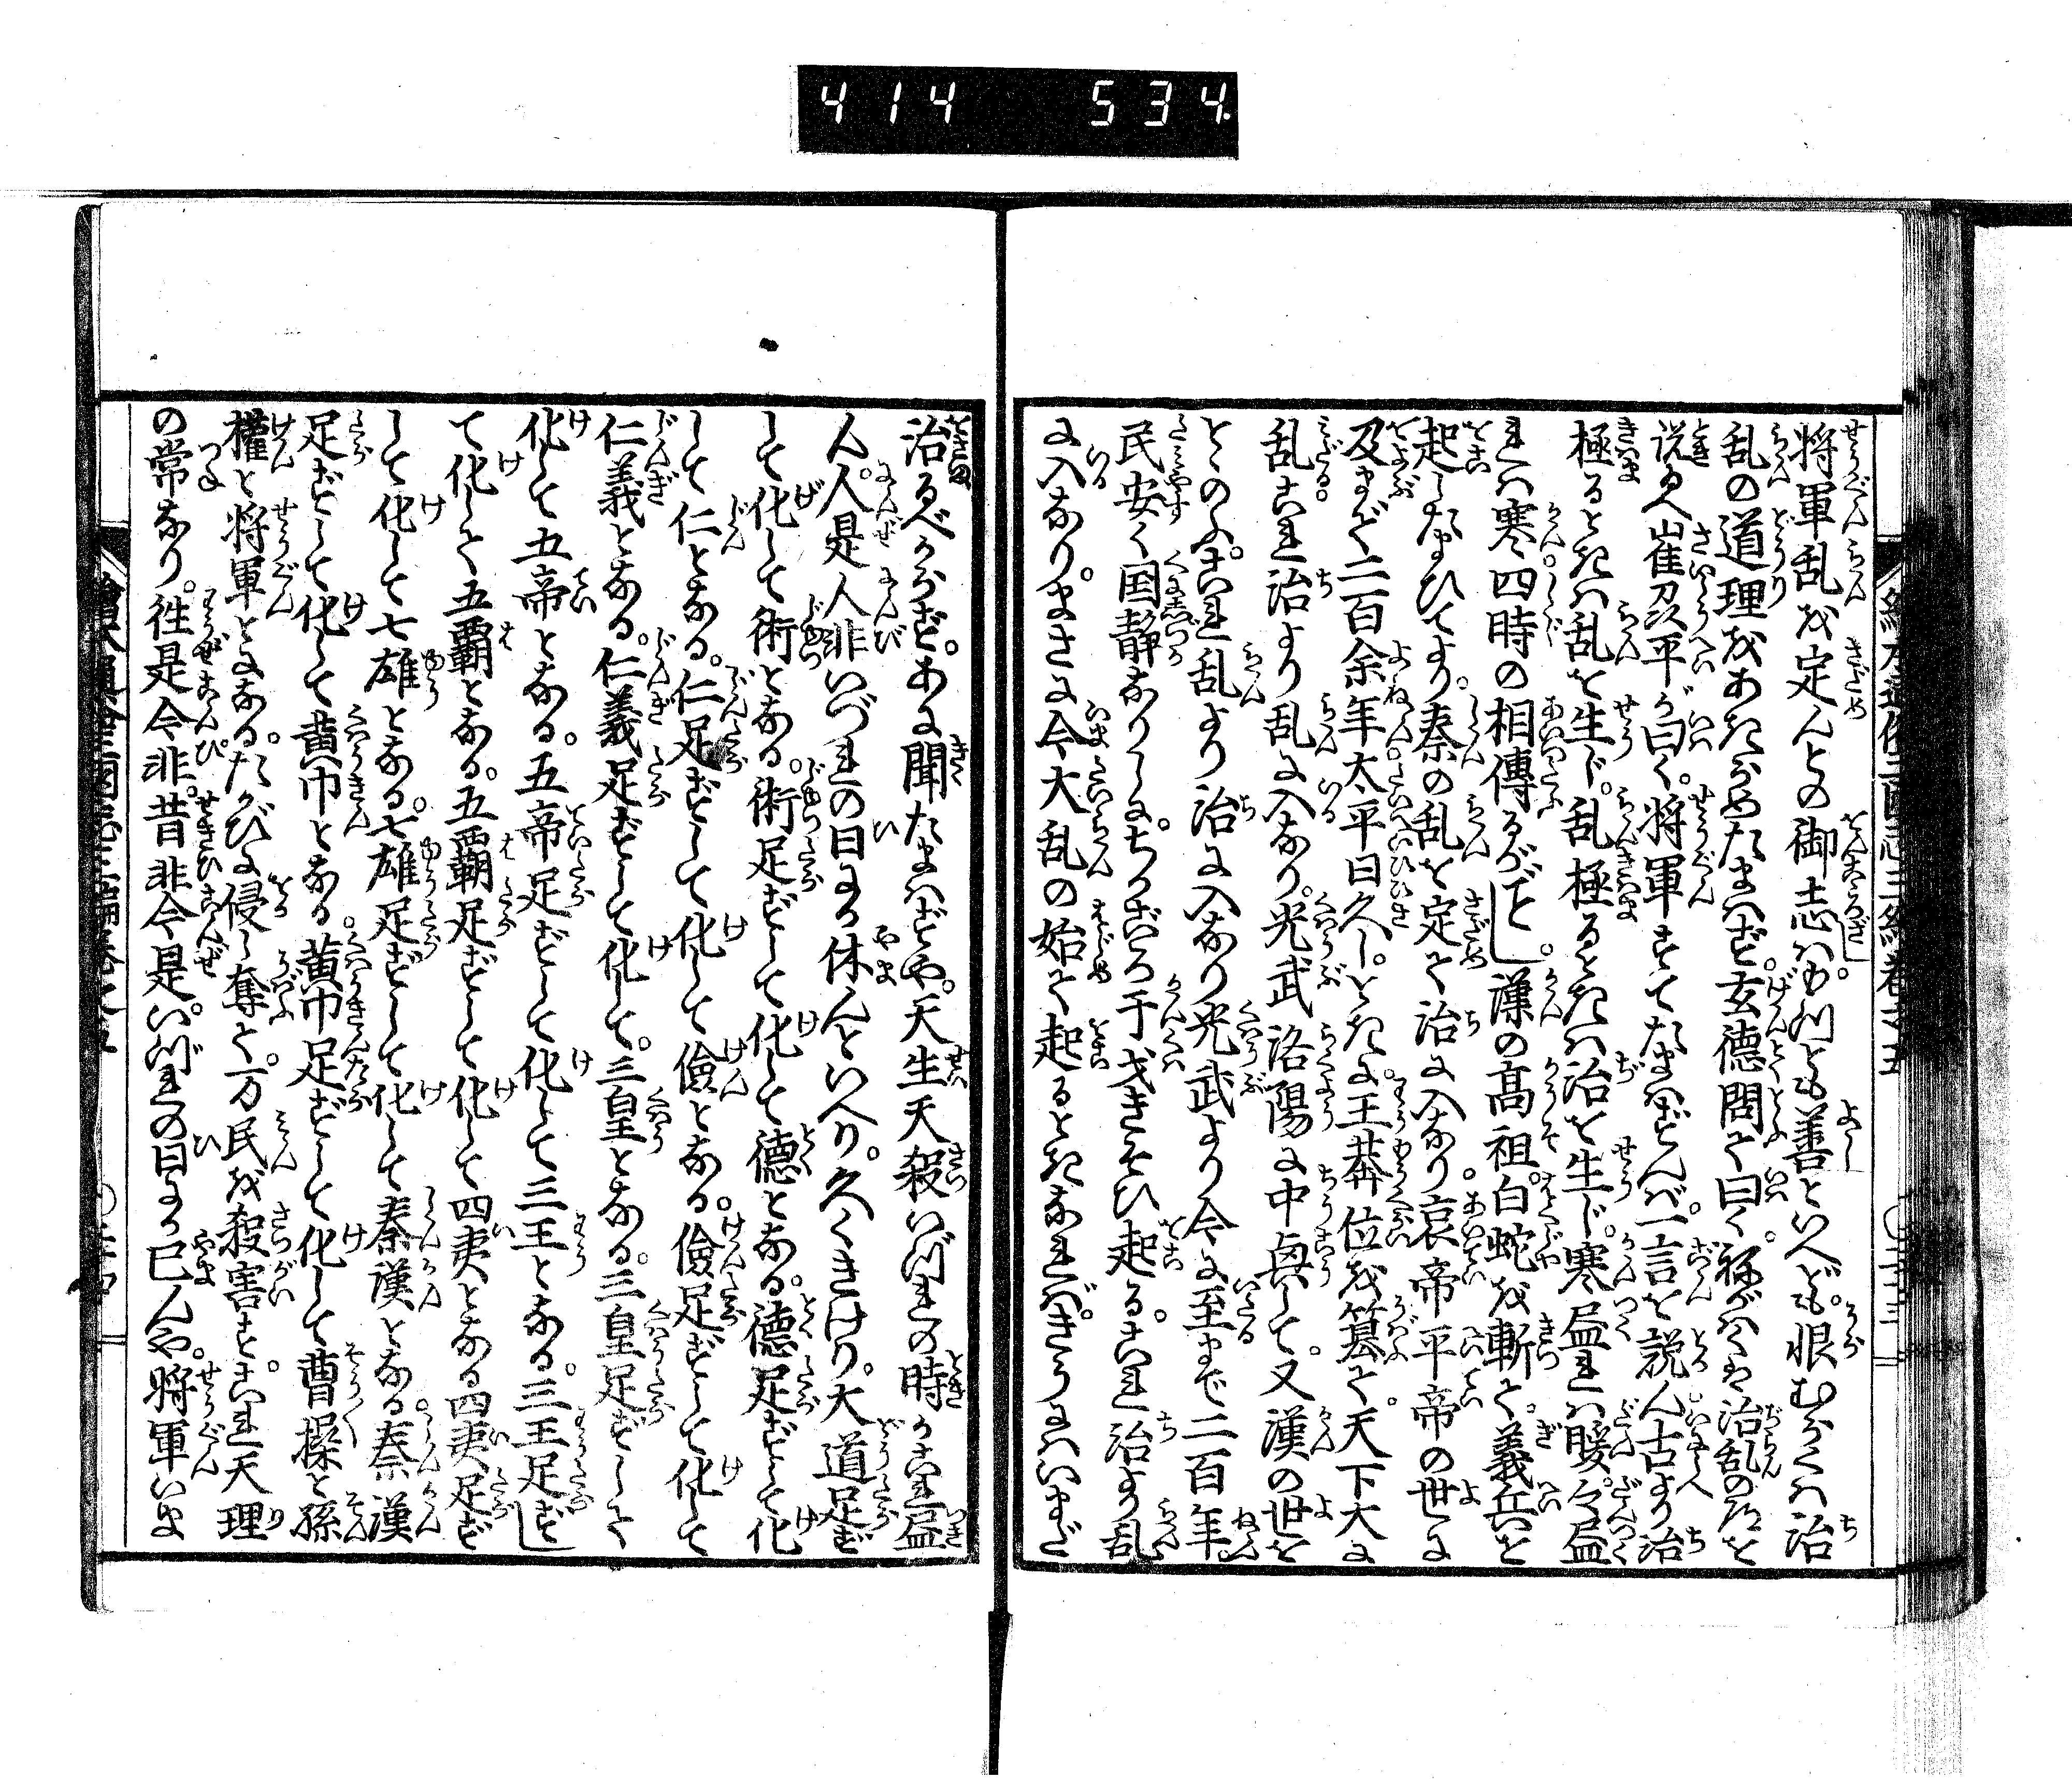 414 534
将軍乱を定んとの御志は。尤とも善といへども。恨むらくは治
乱の道理をあきらめたまはず。玄徳問て曰く。
説たまへ崔州平が曰く。将軍すてたまはずんば。一言を説ん古より治
極るときは乱を生じ。乱極るときは治を生ず。寒尽れば暖に。暖尽
れば寒。四時の相傳るがごとし。漢の高祖。白蛇を斬て。義兵を
起したまひてより。秦の乱を定て治に入なり。哀帝平帝の世に
及まで二百余年太平日久し。ときに。王莽位を簒て。天下大に
乱これ治より乱に入なり。光武洛陽に中興して。又漢の世を
とゝのふ。これ乱より治に入なり光武より今に至まで二百年
民安く国静なりしに。ちかごろ干戈きそひ起る。これ治より乱
に入なり。まさに今大乱の始て起るときなれば。きうにはいまだ
治るべからず。あに聞たまはずや。天生天殺いづれの時かこれ尽
人。人是人非いづれの日にか休んといへり。久くきけり。大道足ず
して化して術となる。術足ずして化して徳となる。徳足ずして化
して仁となる。仁足ずして化して儉となる。儉足ずして化して
仁義となる。仁義足ずして化して。三皇となる。三皇足ずして
化して五帝となる。五帝足ずして化して三王となる。三王足ずし
て化して五覇となる。五覇足ずして化して四夷となる四夷足ず
して化して七雄となる。七雄足ずして化して秦漢となる。秦漢
足ずして化して黄巾となる。黄巾足ずして化して曹操と孫
權と将軍とになる。たがひに侵し奪て。万民を殺害す。これ天理
の常なり。徃是今非。昔非今是。いづれの日にか已んや。将軍いま